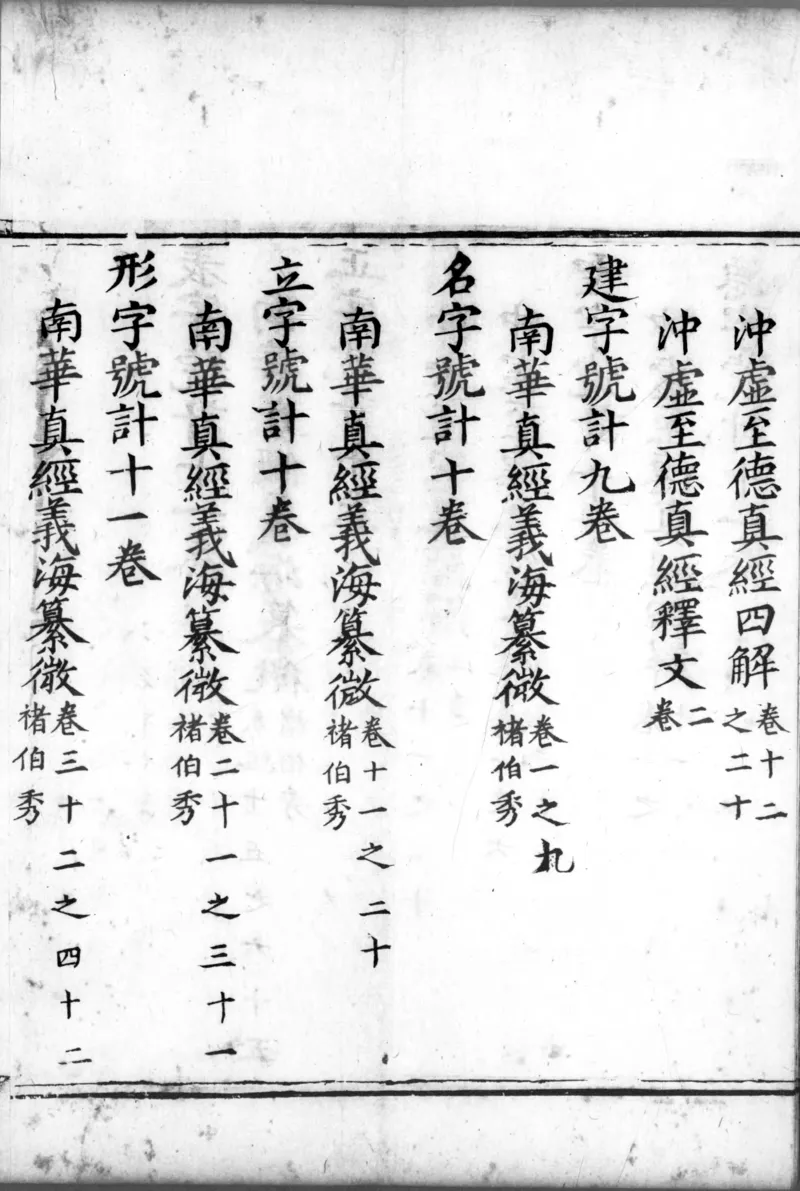 沖虛至德真經四解卷十二之二十
沖虛至德真經釋文二卷
建字號計九卷
南華真經義海纂微卷一之九褚伯秀
名字號計十卷
南華真經義海纂微卷十一之二十褚伯秀
立字號計十卷
南華真經義海纂微卷二十一之三十一褚伯秀
形字號計十一卷
南華真經義海纂微卷三十二之四十二褚伯秀